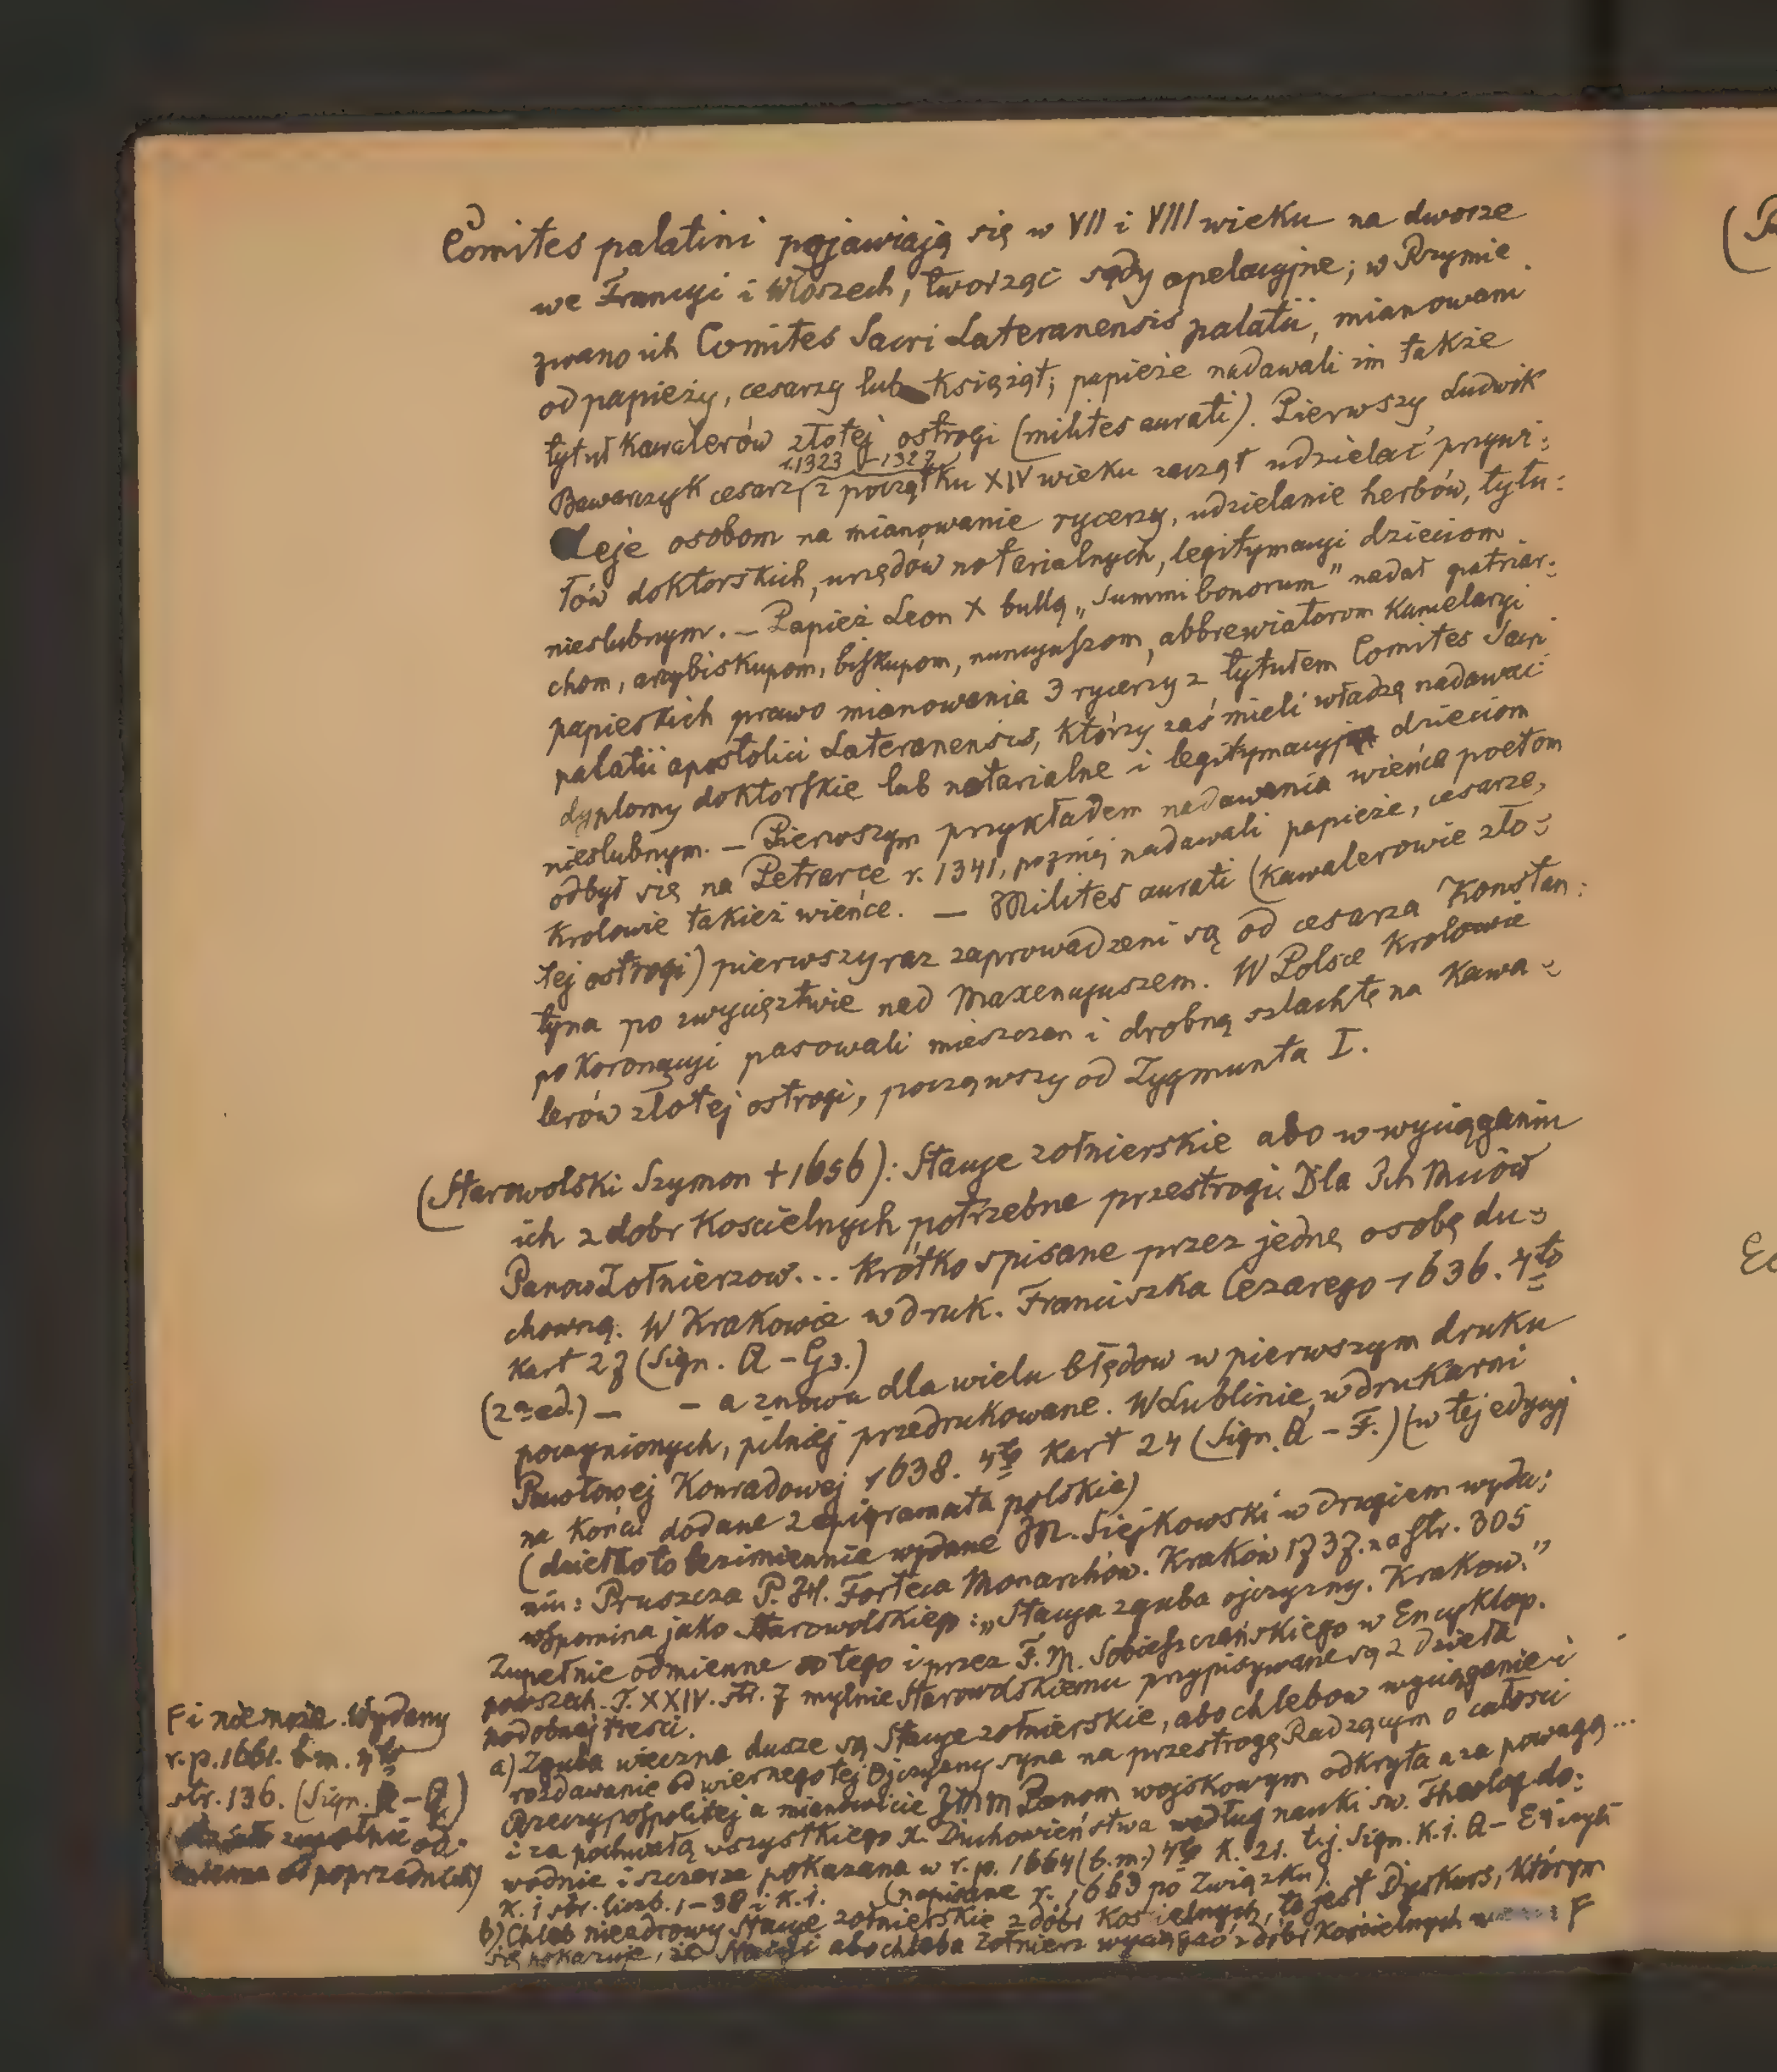 Comites palatini pojawiają się w VII i VIII wieku na dworze
we Francyi i Włoszech, tworząc sądy apelacyjne; w Rzymie
zwano ich Comites Sacri Lateranensis palatii, mianowani
od papieży, cesarzy lub Książąt; papieże nadawali im także
tytuł Kawalerów złotej ostrogi (milites aurati). Pierwszy Ludwik
r. 1323 – 1327
Bawarczyk cesarz z początku XIV wieku zaczął udzielać przywi-
leje osobom na mianowanie rycerzy, udzielanie herbów, tytu-
łów doktorskich, urzędów notarialnych, legitymacyi dzieciom
nieslubnym. — Papież Leon X bullą „Summi bonorum" nadał patriar-
chom, arcybiskupom, biskupom, nuncyuszom, abbrewiatorom Kancelaryi
papieskich prawo mianowania 3 rycerzy z tytułem Comites Sacri
palatii apostolici Lateranensis, którzy zaś mieli władzę nadawać
dyplomy doktorskie lub notarialne i legitymacyj dzieciom
nieslubnym. — Pierwszym przykładem nadawania wieńca poetom
odbył się na Petrarce r. 1341, pozniej nadawali papieże, cesarze,
Krolowie takież wieńce. — Milites aurati (Kawalerowie zło-
tej ostrogi) pierwszy raz zaprowadzeni są od cesarza Konstan-
tyna po zwycięztwie nad Maxencyuszem. W Polsce Krolowie
po Koronacyi pasowali mieszczan i drobną szlachtę na Kawa-
lerów złotej ostrogi, począwszy od Zygmunta I.
(Starowolski Szymon † 1656): Stacye zołnierskie abo w wyciąganiu
ich z dobr Koscielnych potrzebne przestrogi. Dla Ich Mciów
Panow Zołnierzow... Krótko spisane przez jednę osobę du-
chowną. W Krakowie w druk. Franciszka Cezarego 1636. 4to
Kart 27 (Sign. A – G3.)
(2a ed.) — – a znowu dla wielu błędow w pierwszym druku
poczynionych, pilniej przedrukowane. W Lublinie, w drukarni
Pawłowej Konradowej 1638. 4to Kart 24 (Sign. A – F.) (w tej edycyj
na końcu dodane 2 epigramata polskie)
(dziełko to bezimiennie wydane M. Siejkowski w drugiem wyda-
niu: Pruszcza P. H. Forteca Monarchów. Kraków 1737. na str. 305
wspomina jako Starowolskiego: „Stacya zguba ojczyzny. Krakow."
Zupełnie odmienne od tego i przez F. M. Sobieszczańskiego w Encyklop.
powszech. T. XXIV. str. 7 mylnie Starowolskiemu przypisywane są 2 dzieła
podobnej tresci.
a) Zguba wieczna dusze są Stacye zołnierskie, abo chlebow wyciąganie i
rozdawanie od wiernego tej Ojczyzny syna na przestrogę Radzącym o całości
Rzeczypospolitej a mianowicie Panom wojskowym odkryta a za powagą...
i za pochwałą wszystkiego X. Duchowieństwa według nauki sw. Theolog. do-
wodnie i szczerze pokazana w r. p. 1664 (b. m.) 4to K. 21. t. j. Sign. K. 1. A – E4 czyli
K. 1 str. liczb. 1 – 38 i K. 1. (napisane r. 1663 po Związku).
b) Chleb niezdrowy Stacye zołnierskie z dóbr Koscielnych, to jest Dyskurs, którym
się pokazuje, że Stacyi abo chleba Zołnierz wyciągać z dóbr Kościelnych F
F i nie może. Wydany
r. p. 1661. b. m. 4to
str. 136. (Sign. A – )
zupełnie od-
mienna od poprzednich)